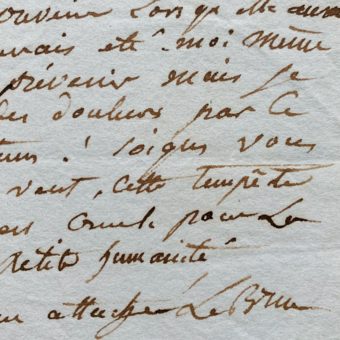 souvenir lorsqu'elle aura
avais été moi même
prévenir mais je
des douleurs par ce
tems ! soignes vous
vent, cette tempête
cruels pour la
petite humanité
attaché LeBrun